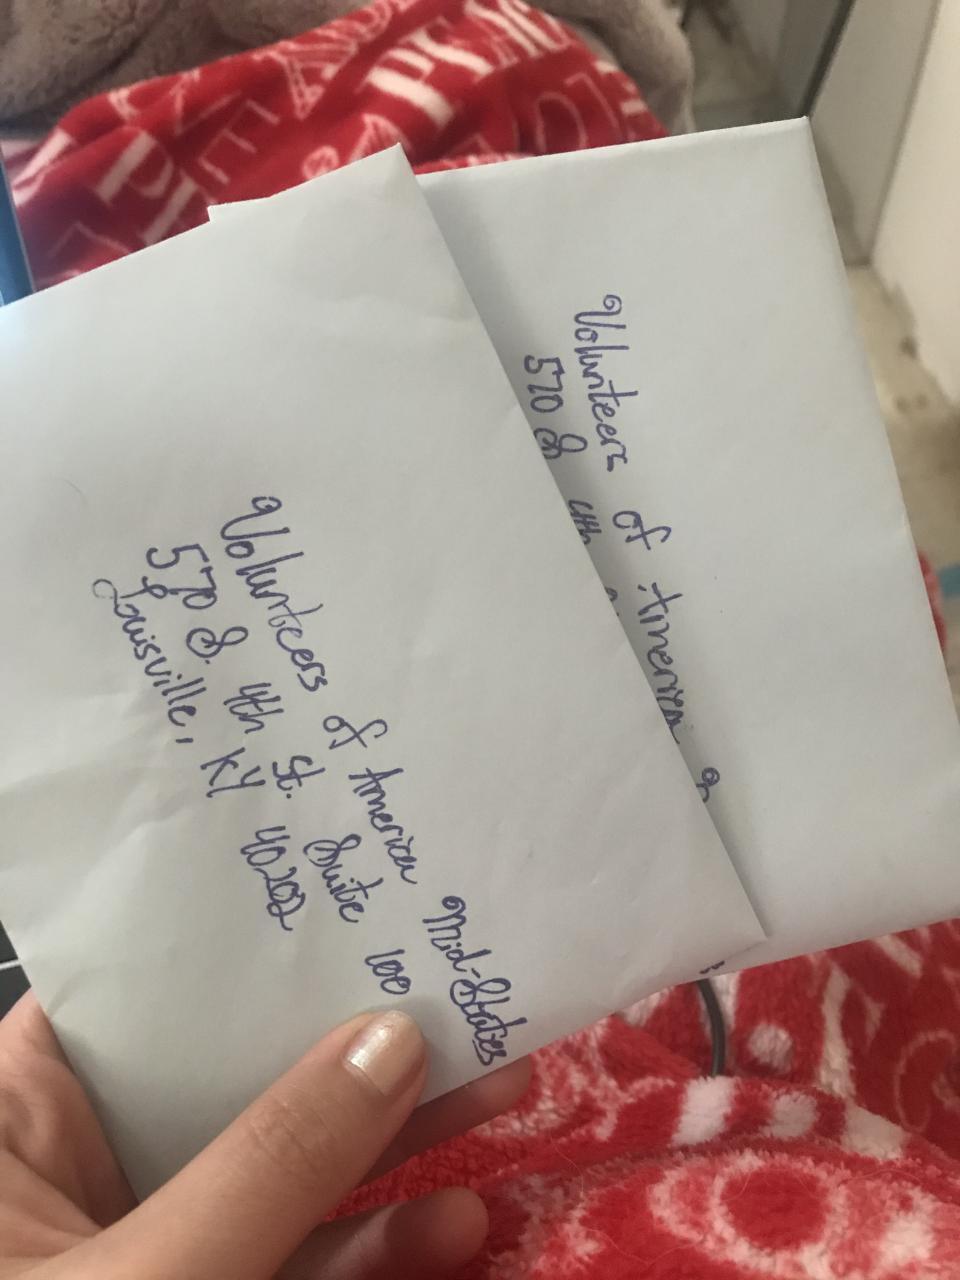 Volunteers of America Mid-States
570 S. 4th St. Suite 100
Louisville, KY 40202
Volunteers of America
570 S 4th